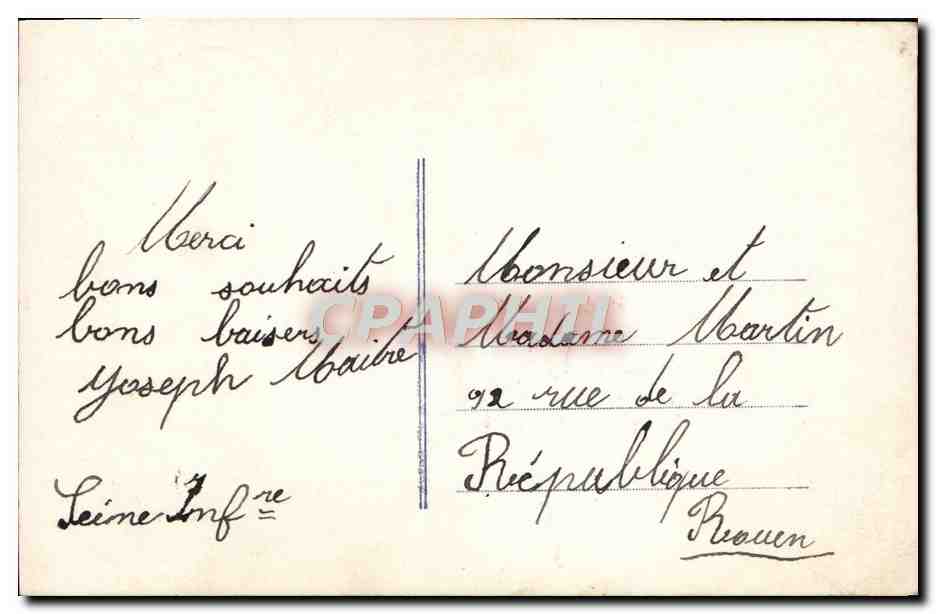 Merci
bons souhaits
bons baisers
Joseph Maitre
Seine Inf^re
Monsieur et
Madame Martin
92 rue de la
République
Rouen
CPAPHIL